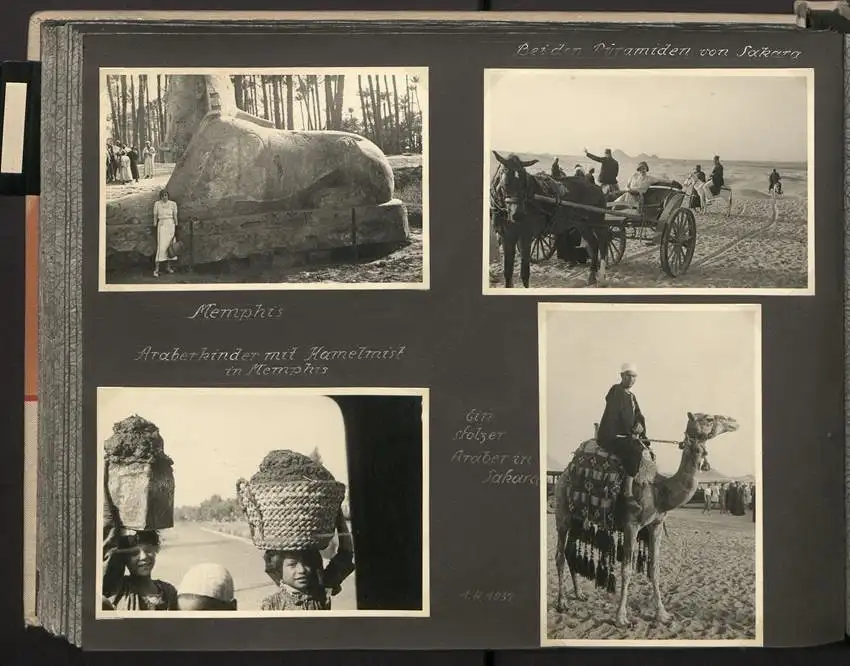 Bei den Püramiden von Sakara
Memphis
Araberkinder mit Kamelmist
in Memphis
Ein
stolzer
Araber in
Sakara